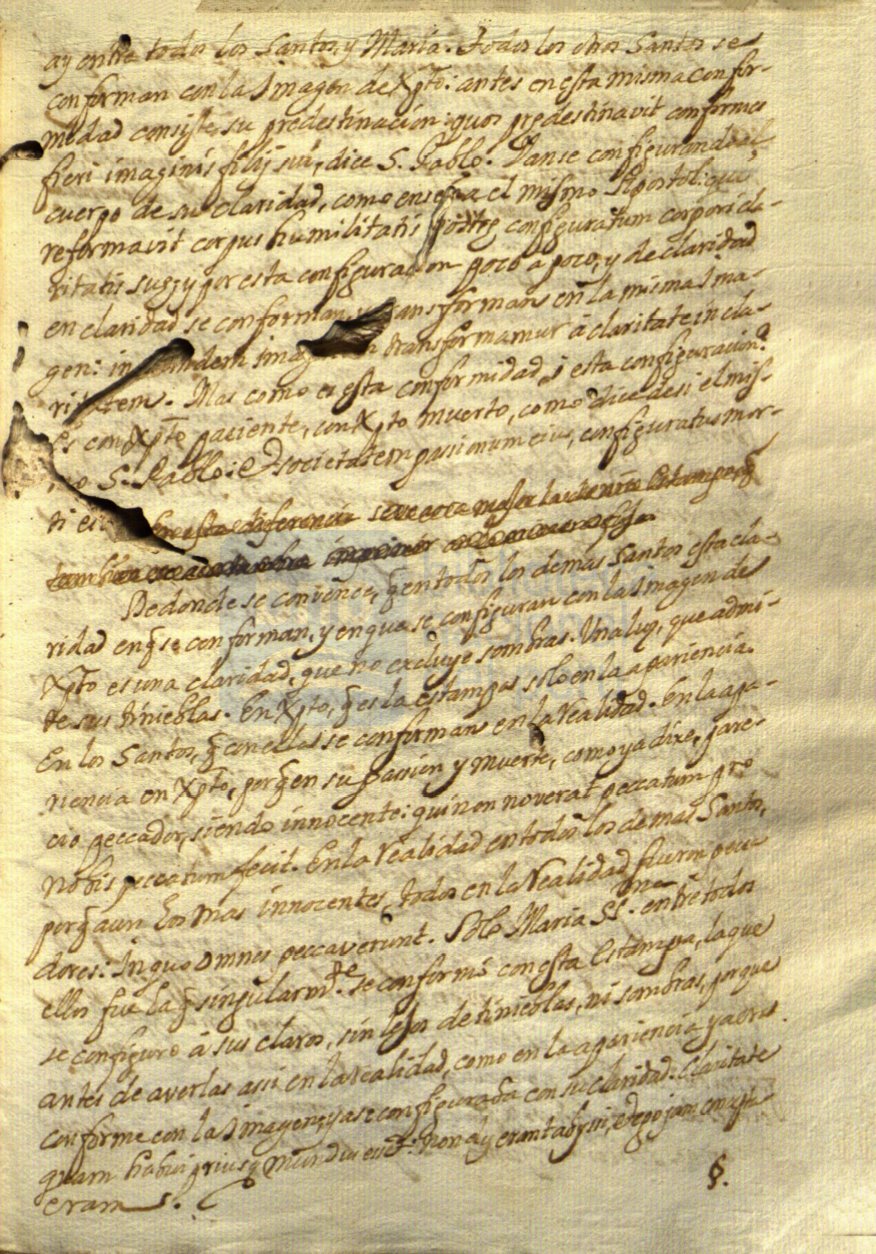 ay entre todos los Santos, y Maria. Todos los otros Santos se
conforman con la Imagen de Xpto: antes en esta misma confor-
midad consiste su predestinacion: quos predestinavit conformes
fieri imaginis filij sui, dice S. Pablo. Danse configurando al
cuerpo de su claridad, como enseña el mismo Apostol: qui
reformavit corpus humilitatis configuratum corpori cla-
ritatis suæ; y por esta configuracion poco a poco, y de claridad
en claridad se conforman, y transforman en la misma Ima-
gen: in eamdem imaginem transformamur à claritate in cla-
ritatem. Mas como es esta conformidad, i esta configuracion?
Es con Xpto paciente, con Xpto muerto, como dice de si el mis-
mo S. Pablo: Et societatem passionum eius, configuratus mor-
ti eius. esta diferencia
tambien
De donde se convence, q̃ en todos los demas Santos esta cla-
ridad en q̃ se conforman, y en que se configuran con la Imagen de
Xpto es una claridad, que no excluye sombras. Una luz, que admi-
te sus tinieblas. En Xpto, q̃ es la estampa, solo en la apariencia.
En los Santos, q̃ con ella se conforman, en la realidad. En la apa-
riencia en Xpto, porq̃ en su passion y muerte, como ya dixe, pare-
cio peccador, siendo innocente: qui non noverat peccatum pro
nobis peccatum fecit. En la realidad en todos los demas Santos,
porq̃ aun los mas innocentes, todos en la realidad fueron pecca-
dores: In quo omnes peccaverunt. Solo Maria SS.ma entre todos
ellos fue la q̃ singularm.te se conformò con esta Estampa, la que
se configuro à sus claros, sin lejos de tinieblas, ni sombras, porque
antes de averlas assi en la realidad, como en la apariencia ya era
conforme con la Imagen, y ya se configuraba con su claridad: Claritate
quam habui priusq̃ mundus esset: nondum erant abyssi, et ego jam concepta
eram.
§.